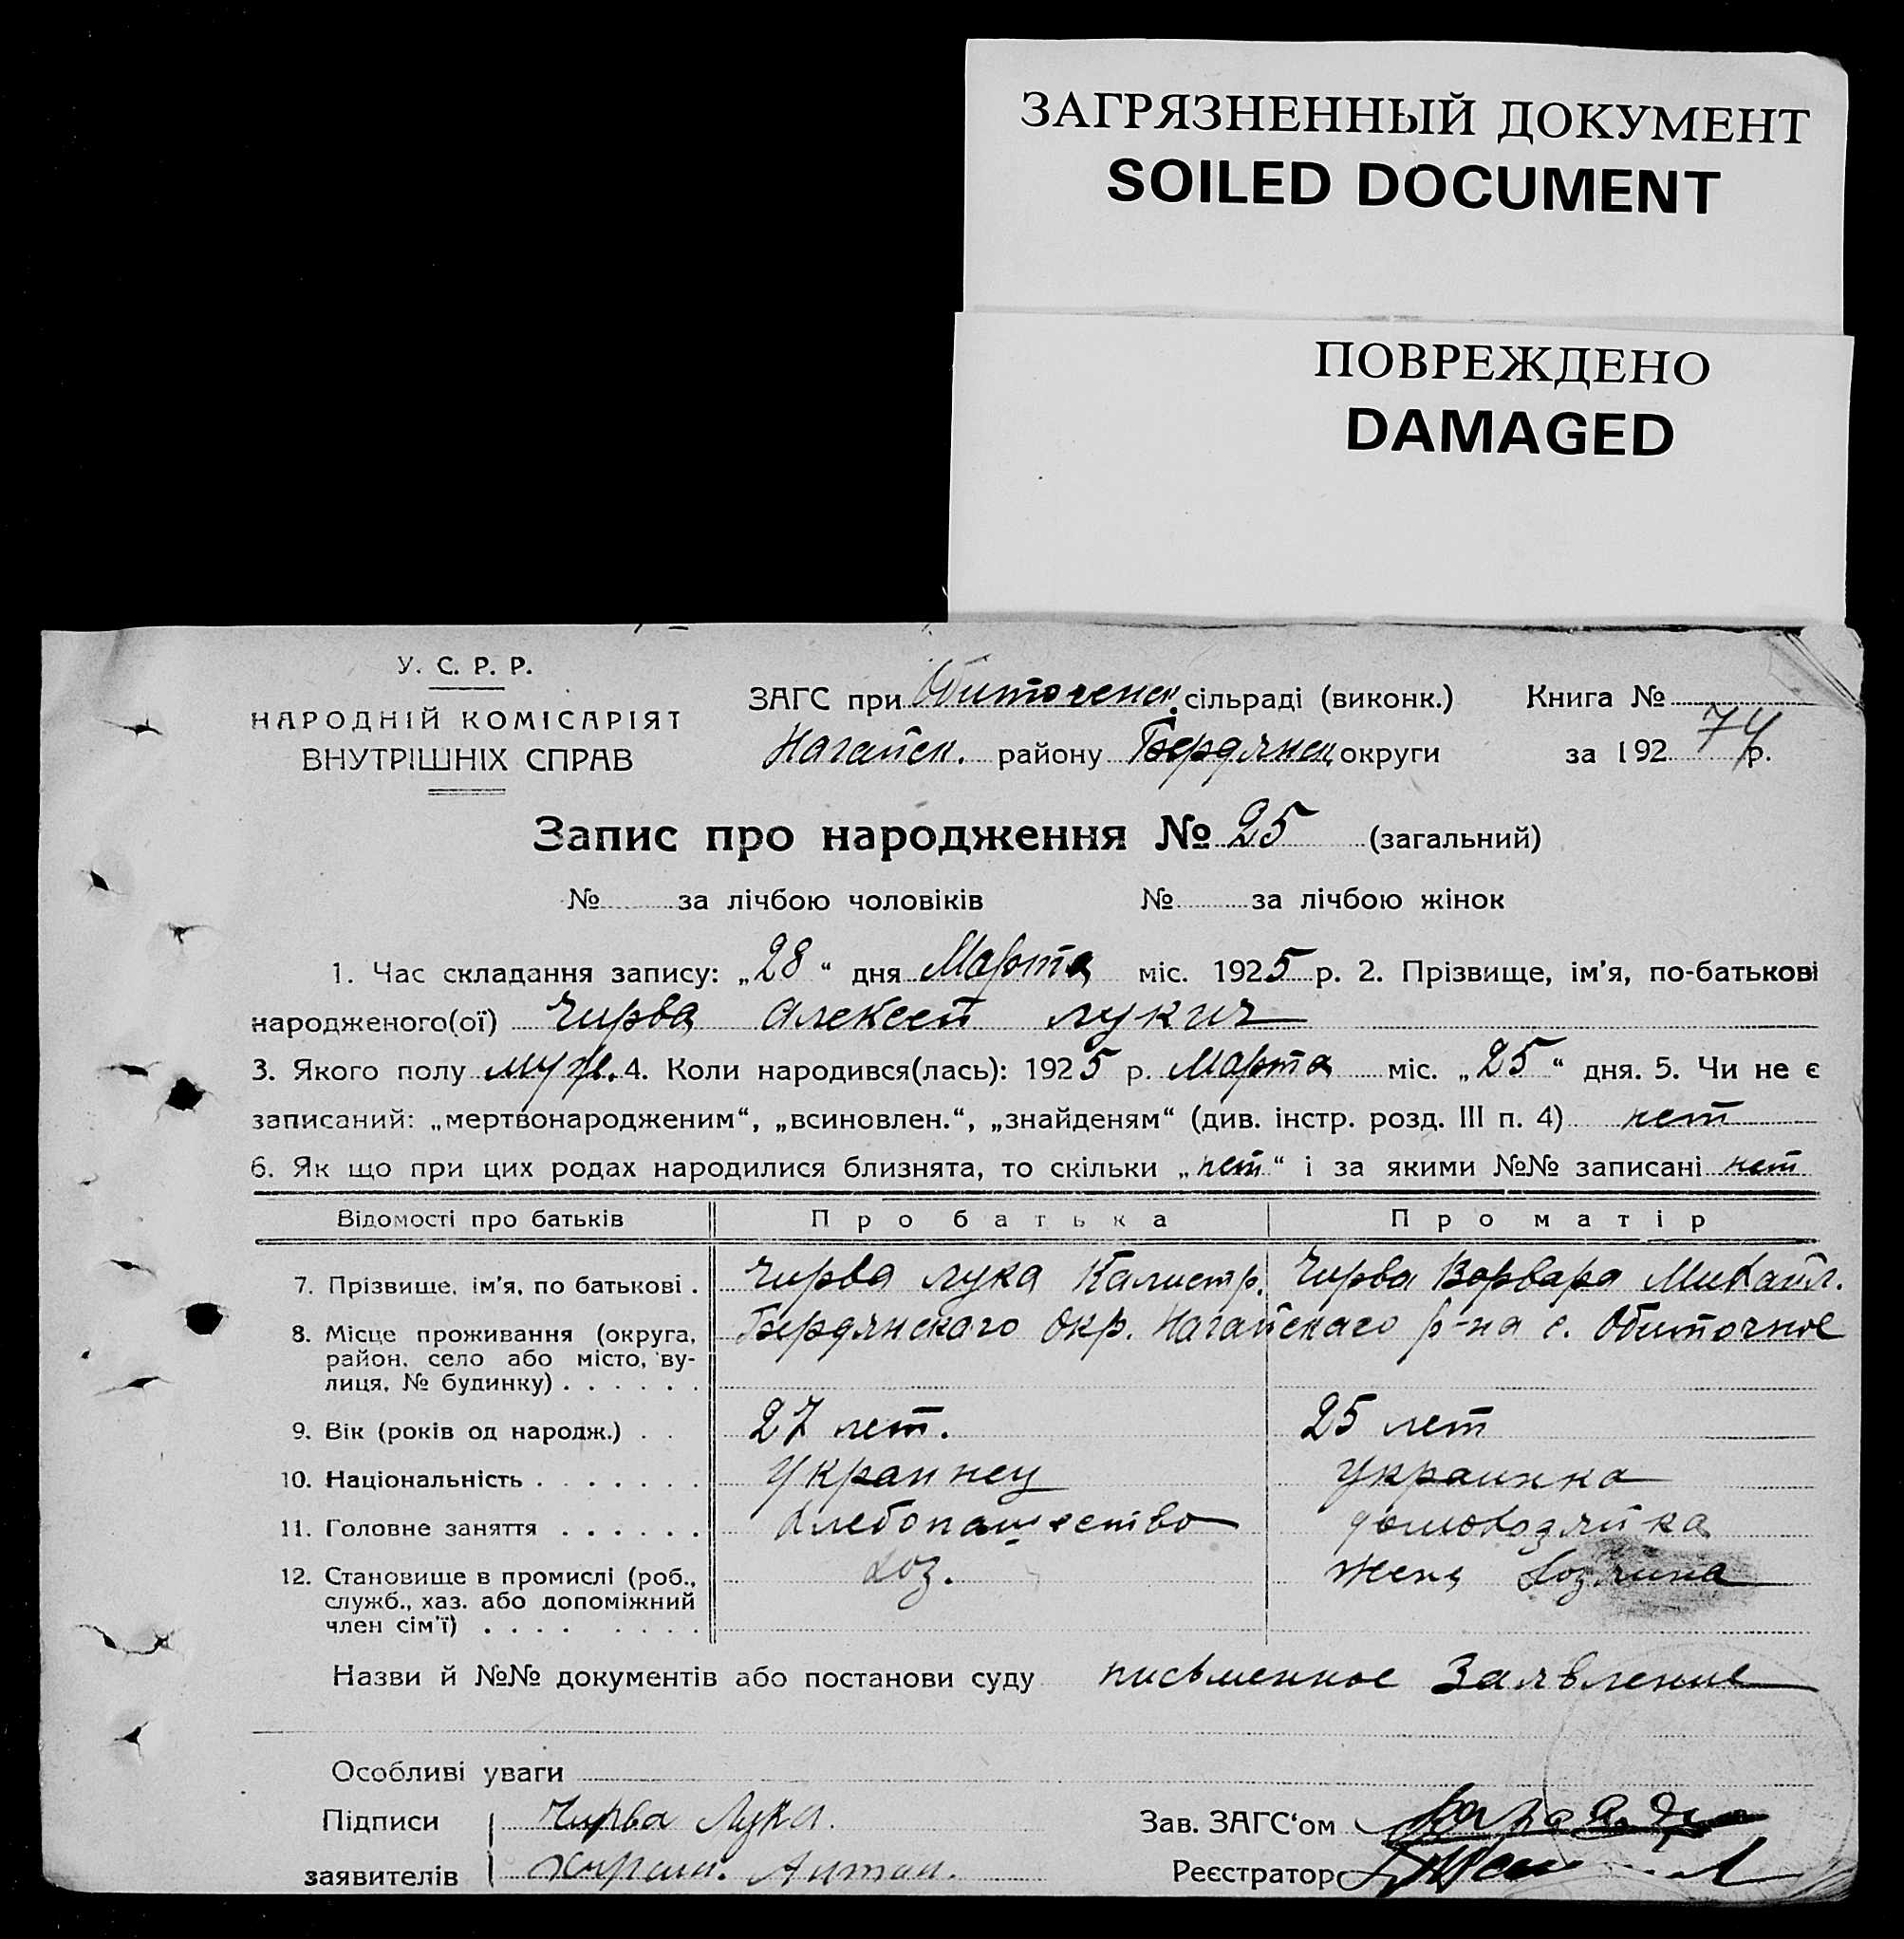 ЗАГРЯЗНЕННЫЙ ДОКУМЕНТ
SOILED DOCUMENT
ПОВРЕЖДЕНО
DAMAGED
У. С. Р. Р.
НАРОДНІЙ КОМІСАРІЯТ
ВНУТРІШНІХ СПРАВ
ЗАГС при Обиточенск. сільраді (виконк.) Книга №
Нагайск. району Бердянск округи за 192 74 р.
Запис про народження № 25 (загальний)
№ за лічбою чоловіків № за лічбою жінок
1. Час складання запису: „28“ дня Марта міс. 1925 р. 2. Прізвище, ім’я, по-батькові
народженого(ої) Чирва Алексей Лукич
3. Якого полу муж. 4. Коли народився(лась): 1925 р. Марта міс. „25“ дня. 5. Чи не є
записаний: „мертвонародженим“, „всиновлен.“, „знайденям“ (див. інстр. розд. III п. 4) нет
6. Як що при цих родах народилися близнята, то скільки „нет“ і за якими №№ записані нет
Відомості про батьків Про батька Про матір
7. Прізвище, ім’я, по батькові . Чирва Лука Калистр. Чирва Варвара Михайл.
8. Місце проживання (округа, Бердянскаго Окр. Нагайскаго р-на с. Обиточное
район, село або місто, ву-
лиця, № будинку) . . . . . .
9. Вік (років од народж.) . . 27 лет. 25 лет
10. Національність . . . . . . . Украинец Украинка
11. Головне заняття . . . . . . Хлебопашество домохозяйка
12. Становище в промислі (роб., хоз. жена хозяина
служб., хаз. або допоміжний
член сім’ї) . . . . . . . .
Назви й №№ документів або постанови суду письменное Заявление
Особливі уваги
Підписи Чирва Лука. Зав. ЗАГС‘ом
заявителів Антон. Реєстратор